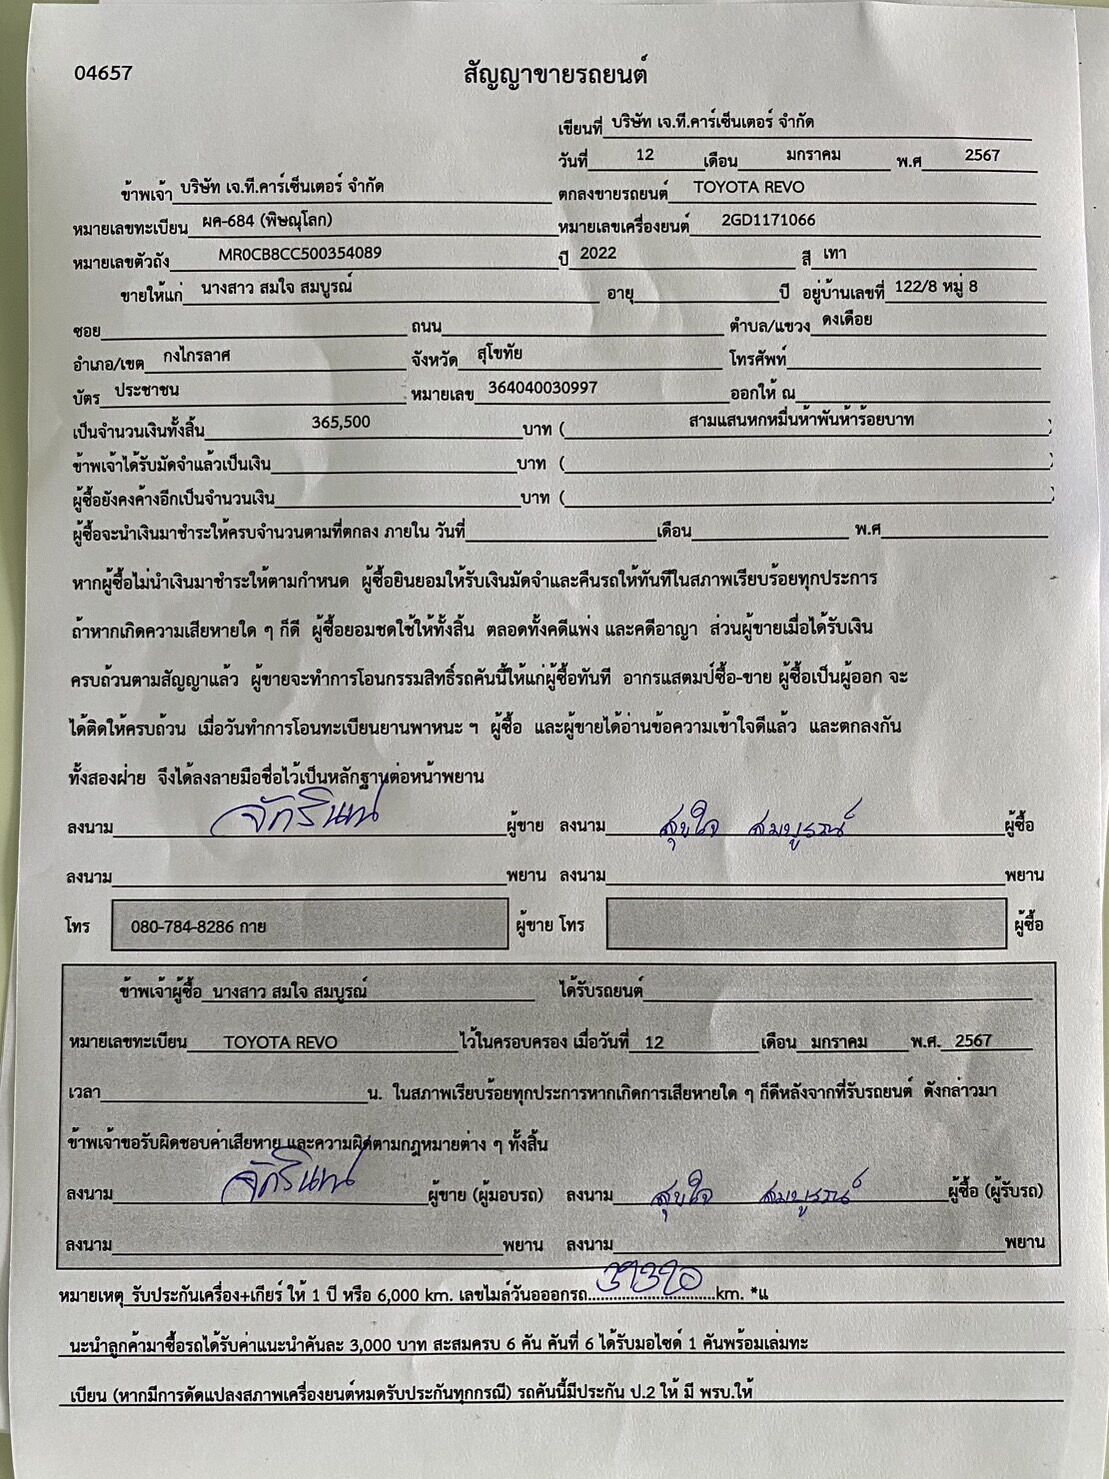 04657
สัญญาขายรถยนต์
เขียนที่ บริษัท เจ.ที.คาร์เซ็นเตอร์ จำกัด
วันที่ 12 เดือน มกราคม พ.ศ 2567
ข้าพเจ้า บริษัท เจ.ที.คาร์เซ็นเตอร์ จำกัด ตกลงขายรถยนต์ TOYOTA REVO
หมายเลขทะเบียน ผค-684 (พิษณุโลก) หมายเลขเครื่องยนต์ 2GD1171066
หมายเลขตัวถัง MR0CB8CC500354089 ปี 2022 สี เทา
ขายให้แก่ นางสาว สมใจ สมบูรณ์ อายุ ปี อยู่บ้านเลขที่ 122/8 หมู่ 8
ซอย ถนน ตำบล/แขวง ดงเดือย
อำเภอ/เขต กงไกรลาศ จังหวัด สุโขทัย โทรศัพท์
บัตร ประชาชน หมายเลข 364040030997 ออกให้ ณ
เป็นจำนวนเงินทั้งสิ้น 365,500 บาท ( สามแสนหกหมื่นห้าพันห้าร้อยบาท )
ข้าพเจ้าได้รับมัดจำแล้วเป็นเงิน บาท ( )
ผู้ซื้อยังคงค้างอีกเป็นจำนวนเงิน บาท ( )
ผู้ซื้อจะนำเงินมาชำระให้ครบจำนวนตามที่ตกลง ภายใน วันที่ เดือน พ.ศ
หากผู้ซื้อไม่นำเงินมาชำระให้ตามกำหนด ผู้ซื้อยินยอมให้รับเงินมัดจำและคืนรถให้ทันทีในสภาพเรียบร้อยทุกประการ
ถ้าหากเกิดความเสียหายใด ๆ ก็ดี ผู้ซื้อยอมชดใช้ให้ทั้งสิ้น ตลอดทั้งคดีแพ่ง และคดีอาญา ส่วนผู้ขายเมื่อได้รับเงิน
ครบถ้วนตามสัญญาแล้ว ผู้ขายจะทำการโอนกรรมสิทธิ์รถคันนี้ให้แก่ผู้ซื้อทันที อากรแสตมป์ซื้อ-ขาย ผู้ซื้อเป็นผู้ออก จะ
ได้ติดให้ครบถ้วน เมื่อวันทำการโอนทะเบียนยานพาหนะ ฯ ผู้ซื้อ และผู้ขายได้อ่านข้อความเข้าใจดีแล้ว และตกลงกัน
ทั้งสองฝ่าย จึงได้ลงลายมือชื่อไว้เป็นหลักฐานต่อหน้าพยาน
ลงนาม จักรินทน์ ผู้ขาย ลงนาม สุขใจ สมบูรณ์ ผู้ซื้อ
ลงนาม พยาน ลงนาม พยาน
โทร 080-784-8286 กาย ผู้ขาย โทร ผู้ซื้อ
ข้าพเจ้าผู้ซื้อ นางสาว สมใจ สมบูรณ์ ได้รับรถยนต์
หมายเลขทะเบียน TOYOTA REVO ไว้ในครอบครอง เมื่อวันที่ 12 เดือน มกราคม พ.ศ. 2567
เวลา น. ในสภาพเรียบร้อยทุกประการหากเกิดการเสียหายใด ๆ ก็ดีหลังจากที่รับรถยนต์ ดังกล่าวมา
ข้าพเจ้าขอรับผิดชอบค่าเสียหาย และความผิดตามกฎหมายต่าง ๆ ทั้งสิ้น
ลงนาม จักรินทน์ ผู้ขาย (ผู้มอบรถ) ลงนาม สุขใจ สมบูรณ์ ผู้ซื้อ (ผู้รับรถ)
ลงนาม พยาน ลงนาม พยาน
หมายเหตุ รับประกันเครื่อง+เกียร์ ให้ 1 ปี หรือ 6,000 km. เลขไมล์วันอออกรถ..............................km. *แ
นะนำลูกค้ามาซื้อรถได้รับค่าแนะนำคันละ 3,000 บาท สะสมครบ 6 คัน คันที่ 6 ได้รับมอไซด์ 1 คันพร้อมเล่มทะ
เบียน (หากมีการดัดแปลงสภาพเครื่องยนต์หมดรับประกันทุกกรณี) รถคันนี้มีประกัน ป.2 ให้ มี พรบ.ให้